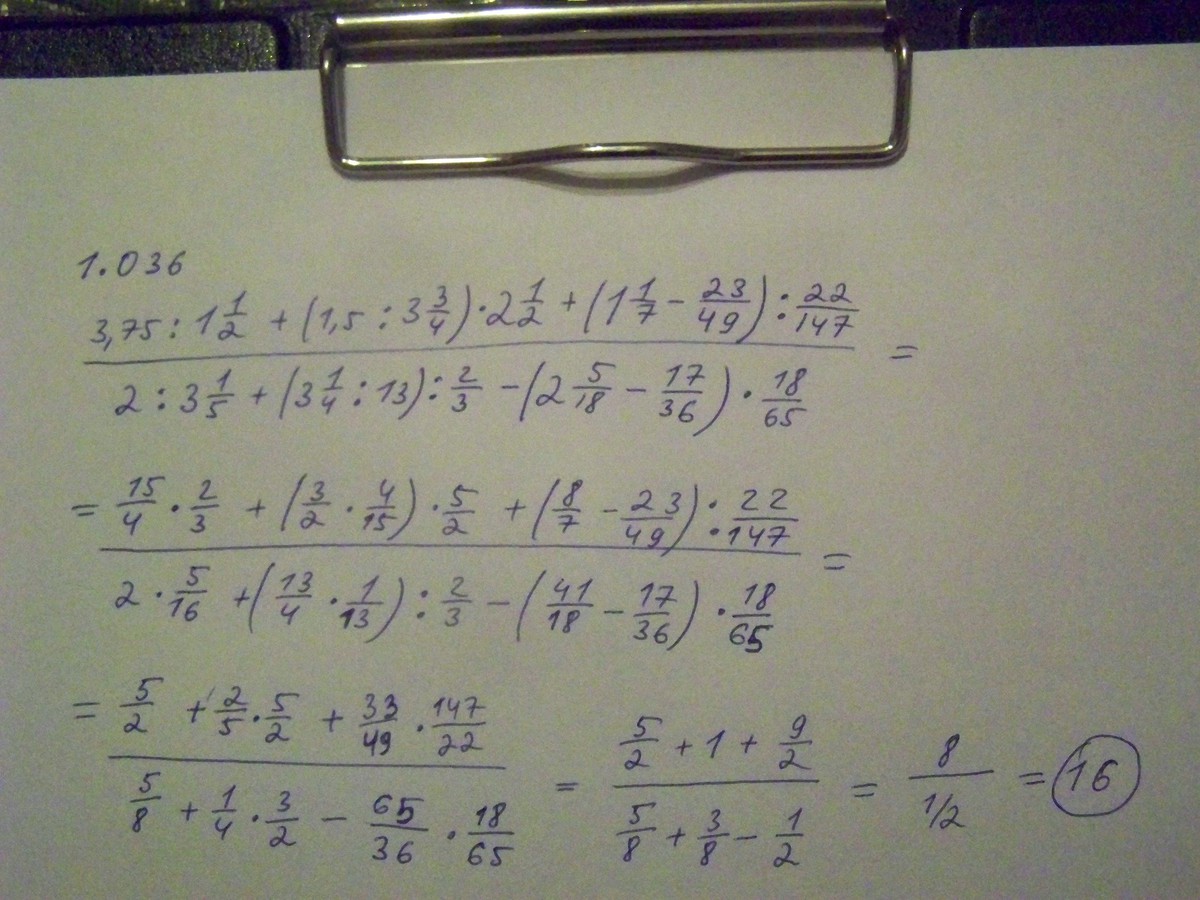 1.036
(3,75 : 1 1/2 + (1,5 : 3 3/4) · 2 1/2 + (1 1/7 − 23/49) : 22/147) / (2 : 3 1/5 + (3 1/4 : 13) : 2/3 − (2 5/18 − 17/36) · 18/65) =
= (15/4 · 2/3 + (3/2 · 4/15) · 5/2 + (8/7 − 23/49) : 22/147) / (2 · 5/16 + (13/4 · 1/13) : 2/3 − (41/18 − 17/36) · 18/65) =
= (5/2 + 2/5 · 5/2 + 33/49 · 147/22) / (5/8 + 1/4 · 3/2 − 65/36 · 18/65) = (5/2 + 1 + 9/2) / (5/8 + 3/8 − 1/2) = 8 / (1/2) = 16